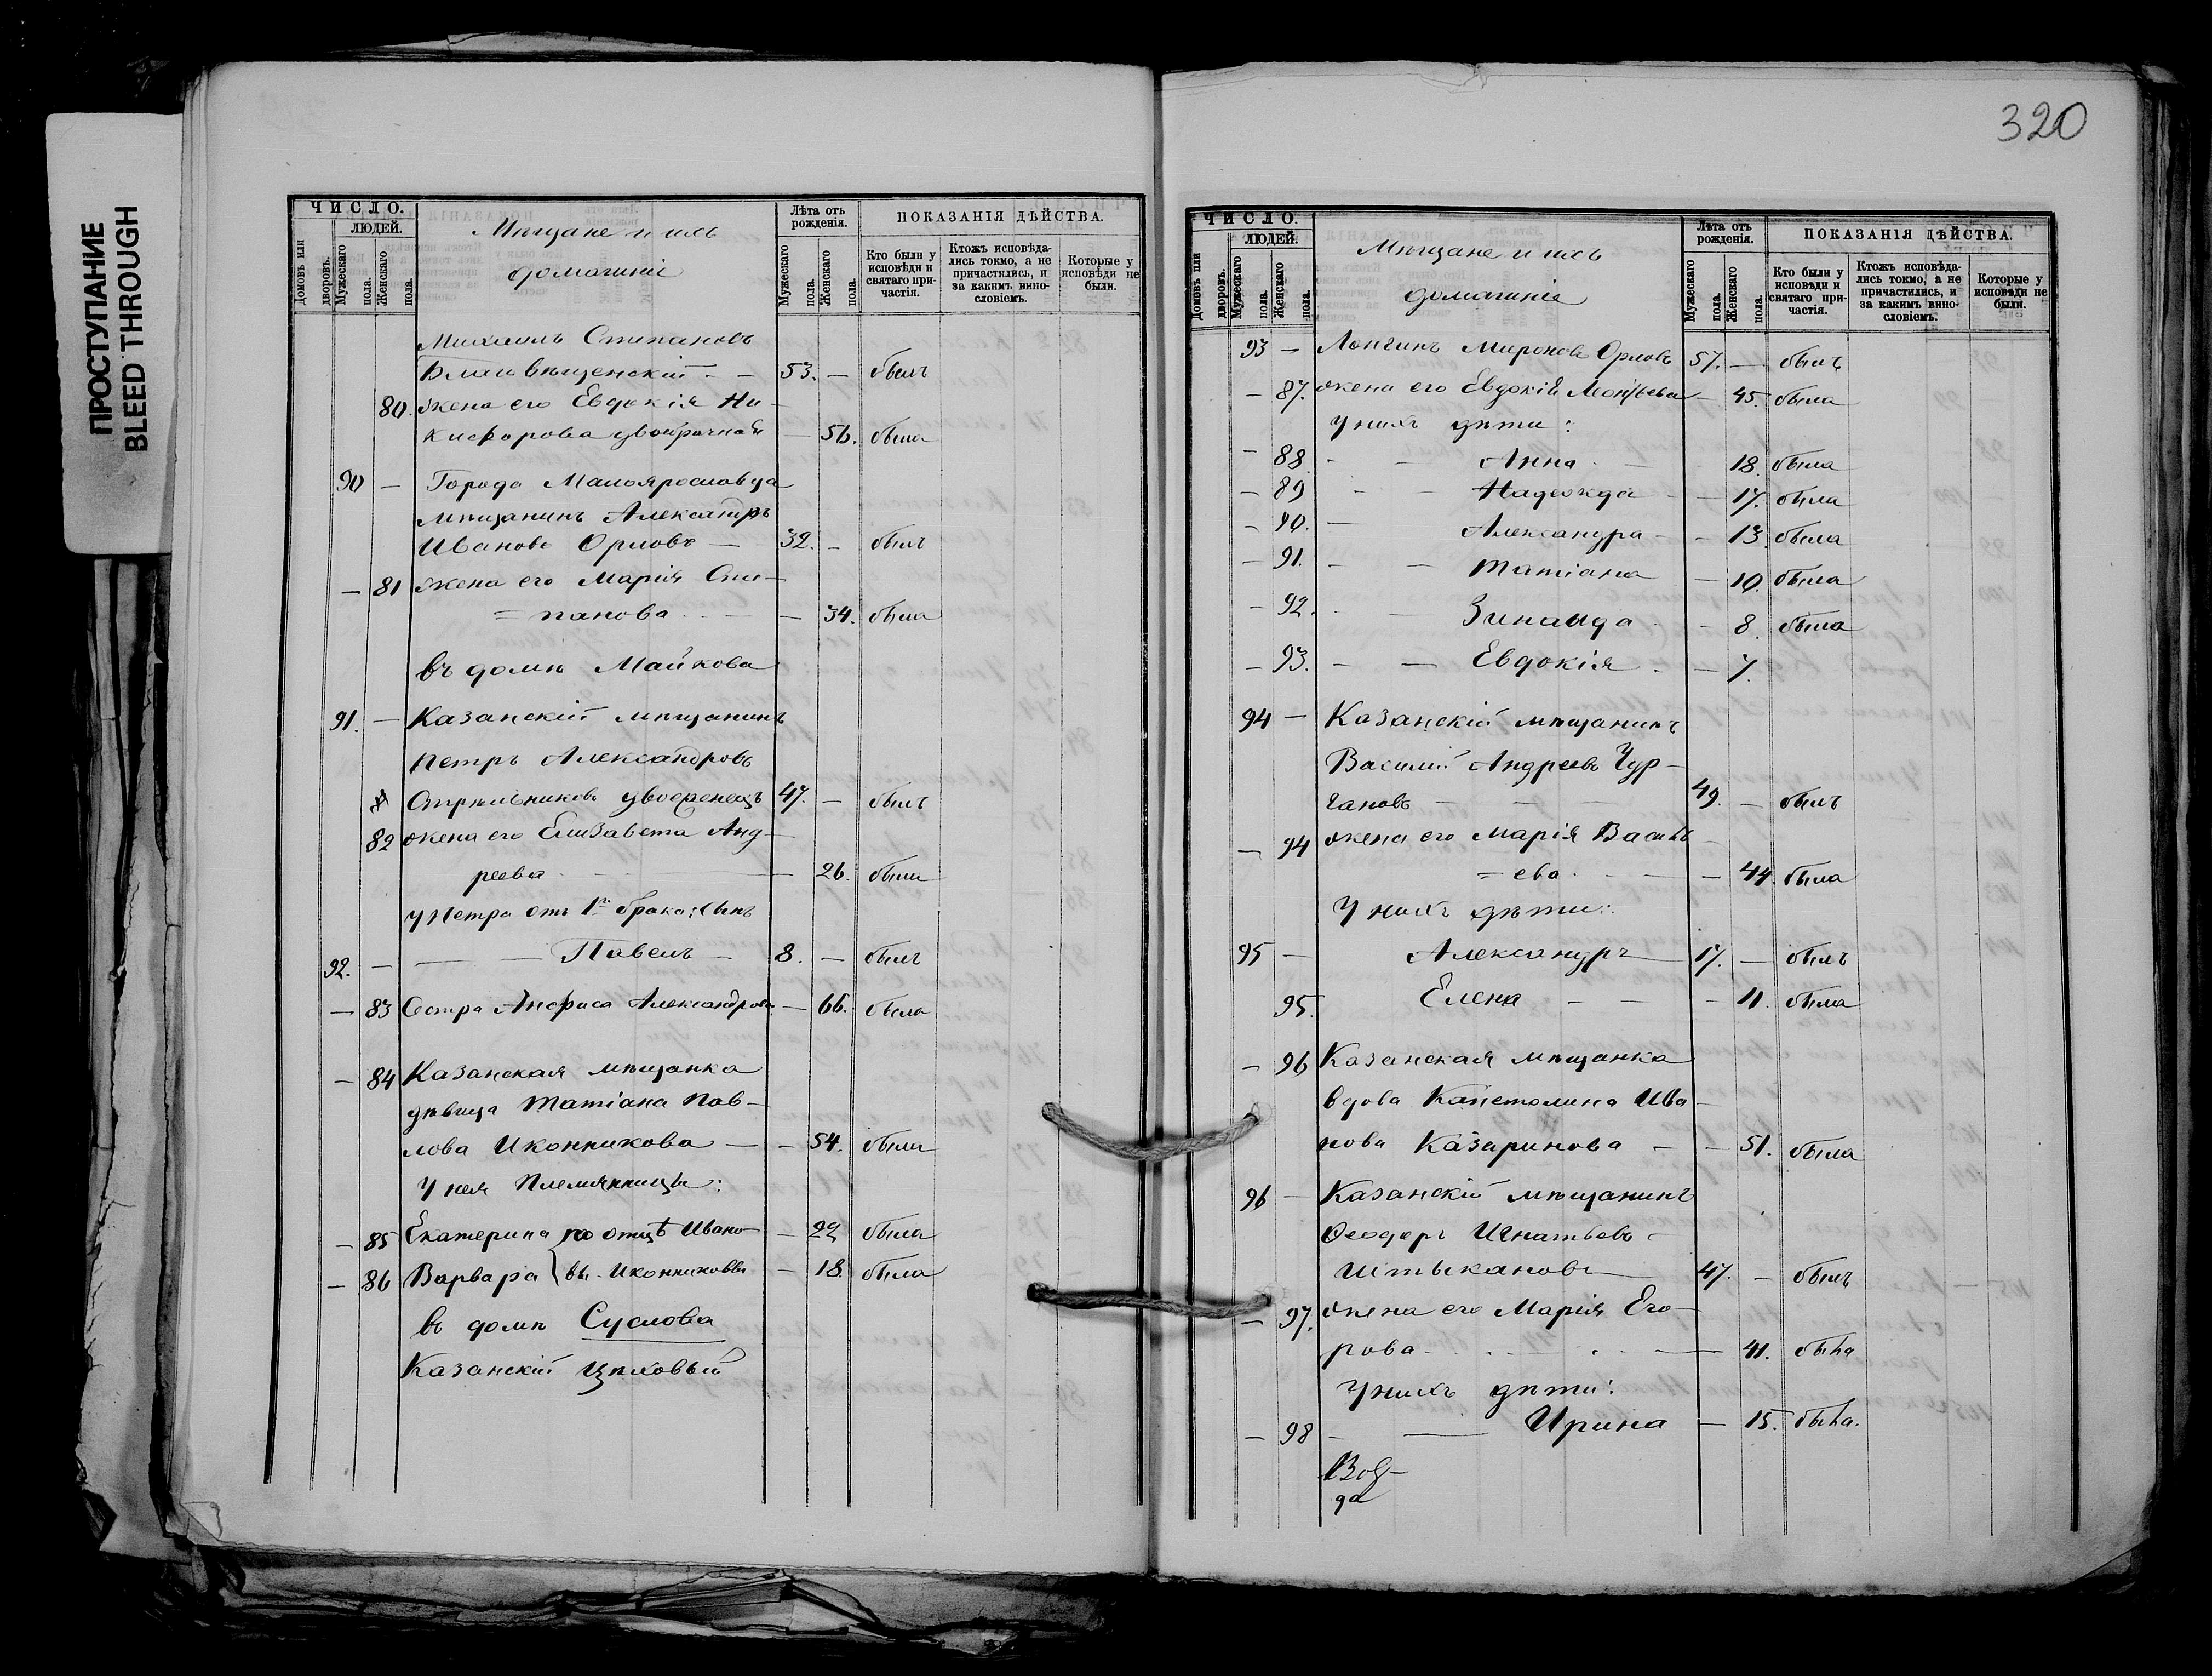 ПРОСТУПАНИЕ
BLEED THROUGH
ЧИСЛО.
ЛЮДЕЙ.
Домовъ или дворовъ.
Мужескаго пола.
Женскаго пола.
Мѣщане и ихъ
домашніе
Лѣта отъ рожденія.
Мужескаго пола.
Женскаго пола.
ПОКАЗАНІЯ ДѢЙСТВА.
Кто были у исповѣди и святаго причастія.
Ктожъ исповѣдались токмо, а не причастились, и за какимъ винословіемъ.
Которые у исповѣди не были.
Михаилъ Степановъ
Благовѣщенскій - - 53. - былъ
80. жена его Евдокія Ни-
кифорова двоебрачная - 56. была
90 - Города Малоярославца
мѣщанинъ Александръ
Ивановъ Орловъ - 32. - былъ
- 81 жена его Марія Сте-
= панова - - 34. была
въ домѣ Майкова
91. - Казанскій мѣщанинъ
Петръ Александровъ
Стрѣльниковъ двоеженецъ 47. - былъ
82 жена его Елизавета Анд-
реева - - 26. была
У Петра отъ 1го брака: сынъ
92. - - - Павелъ - 8. - былъ
- 83 Сестра Анфиса Александрова - 66. была
- 84 Казанская мѣщанка
дѣвица Татіана Пав-
лова Иконникова - - 54. была
У нея племянницы:
- 85 Екатерина по отцѣ Ивано- - 22 была
- 86 Варвара вы. Иконниковы - 18. была
въ домѣ Суслова
Казанскій цѣховый
320
ЧИСЛО.
ЛЮДЕЙ.
Домовъ или дворовъ.
Мужескаго пола.
Женскаго пола.
Мѣщане и ихъ
домашніе
Лѣта отъ рожденія.
Мужескаго пола.
Женскаго пола.
ПОКАЗАНІЯ ДѢЙСТВА.
Кто были у исповѣди и святаго причастія.
Ктожъ исповѣдались токмо, а не причастились, и за какимъ винословіемъ.
Которые у исповѣди не были.
93 - Лонгинъ Мироновъ Орловъ 57. - былъ
- 87. жена его Евдокія Леонтьева - 45. была
У нихъ дѣти:
- 88 - - Анна - 18. была
- 89 - - Надежда - 17. была
- 90. - Александра - - 13. была
- 91. - - Татіана - 10. была
- 92. - - Зинаида - 8. была
- 93. - - Евдокія - - 7.
94 - Казанскій мѣщанинъ
Василій Андреевъ Чур-
гановъ - - - 49. - былъ
- 94 жена его Марія Василь
= ева - - - 44. была
У нихъ дѣти:
95 - Александръ 17. - былъ
95. Елена - - - 11. была
- 96 Казанская мѣщанка
вдова Капетолина Ива-
нова Казаринова - - 51. была
96 - Казанскій мѣщанинъ
Ѳеодоръ Игнатьевъ -
Штыкановъ 47. - былъ
- 97. жена его Марія Его-
рова - - - 41. была
У нихъ дѣти:
- 98 - - Ирина - 15. была.